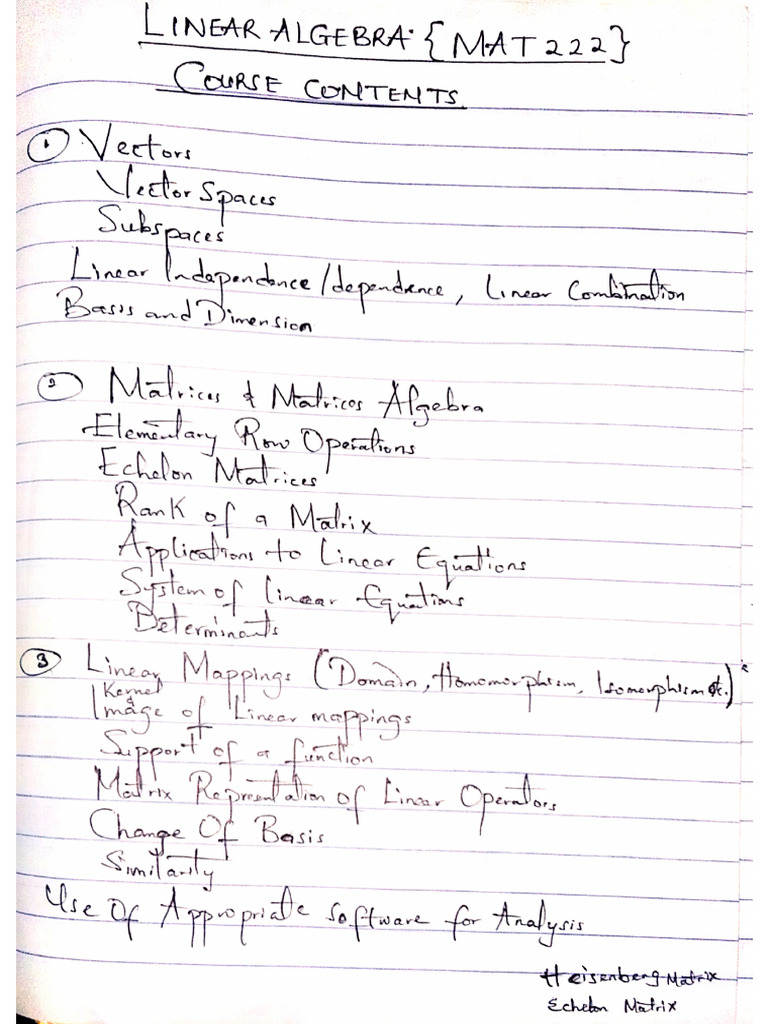 LINEAR ALGEBRA: {MAT 222}
COURSE CONTENTS
① Vectors
Vector Spaces
Subspaces
Linear Independence/dependence, Linear Combination
Basis and Dimension
② Matrices & Matrices Algebra
Elementary Row Operations
Echelon Matrices
Rank of a Matrix
Applications to Linear Equations
System of Linear Equations
Determinants
③ Linear Mappings (Domain, Homomorphism, Isomorphism etc.)
Kernel &
Image of Linear mappings
Support of a function
Matrix Representation of Linear Operators
Change Of Basis
Similarity
Use Of Appropriate Software for Analysis
Heisenberg Matrix
Echelon Matrix